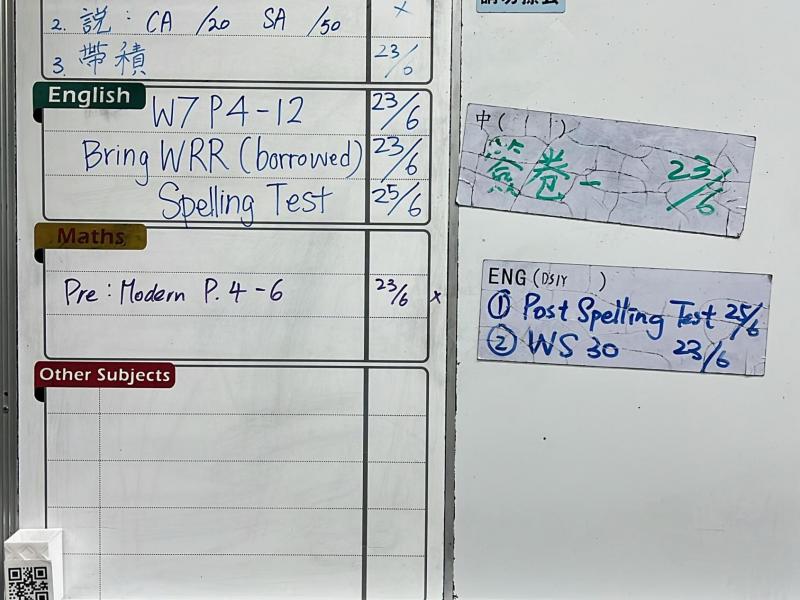 2. 説: CA /20 SA /50 x
3. 帶積 23/6
English
W7 P4-12 23/6
Bring WRR (borrowed) 23/6
Spelling Test 25/6
Maths
Pre: Modern P. 4-6 23/6 x
Other Subjects
中( )
簽卷一 23/6
ENG (DS1Y )
① Post Spelling Test 25/6
② WS 30 23/6